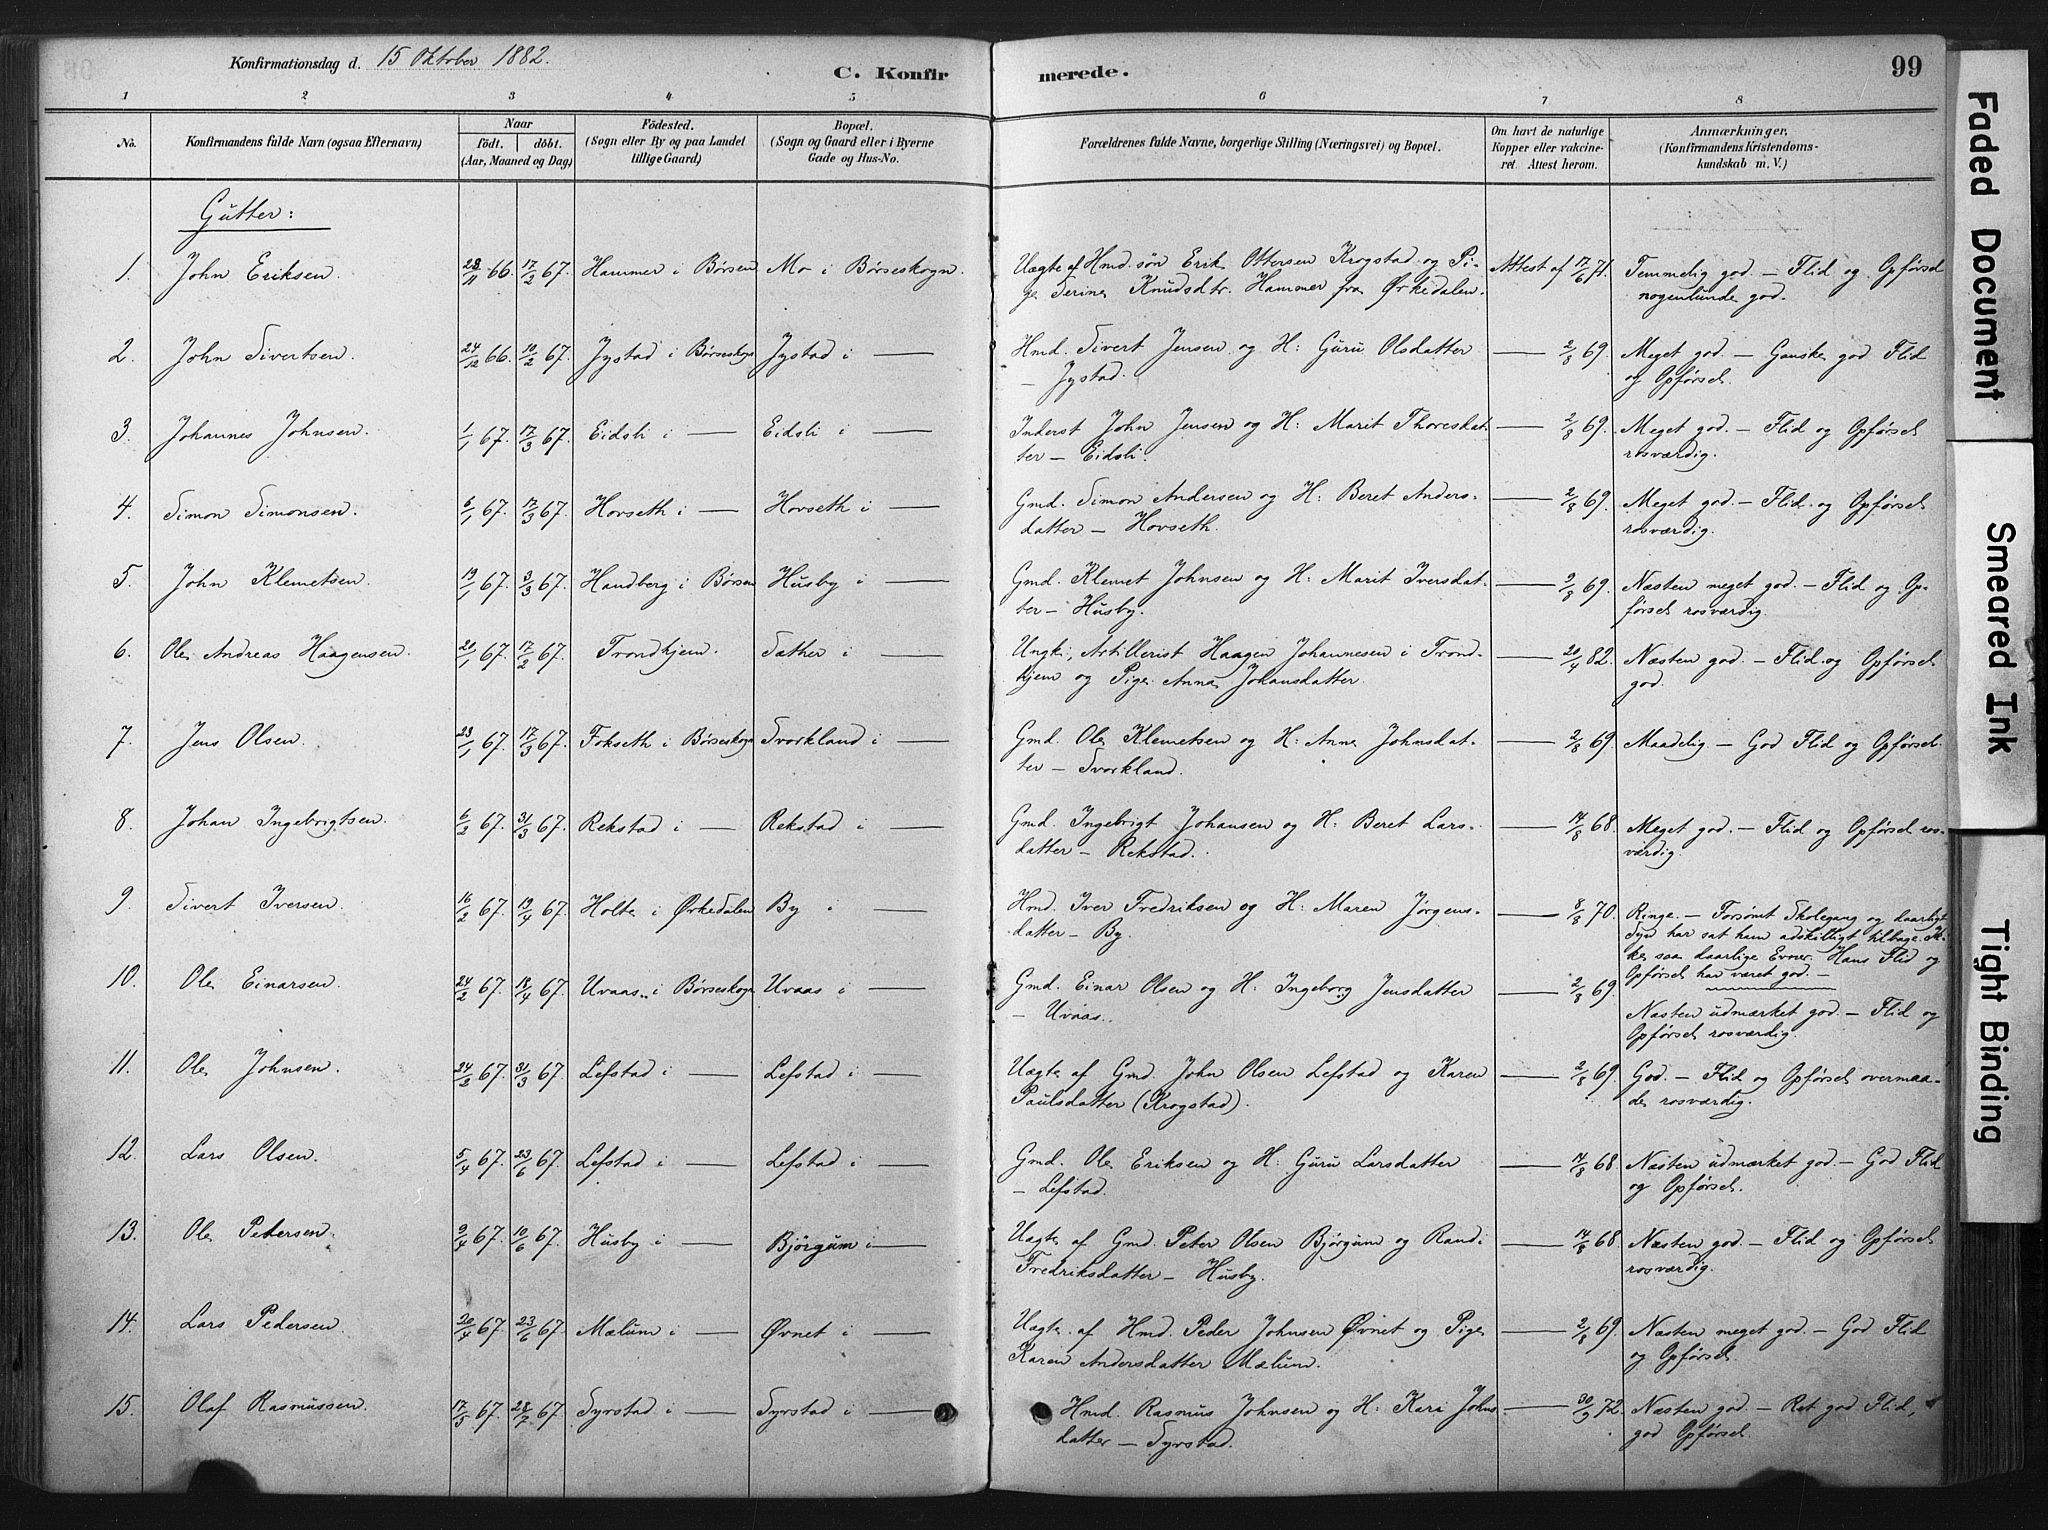 Konfirmationsdag d. 15 Oktober 1882.
C. Konfirmerede.
99
1 2 3 4 5 6 7 8
No.
Konfirmandens fulde Navn (ogsaa Efternavn)
Naar
født. døbt.
(Aar, Maaned og Dag)
Fødested.
(Sogn eller By og paa Landet
tillige Gaard)
Bopæl.
(Sogn og Gaard eller i Byerne
Gade og Hus-No.
Forældrenes fulde Navne, borgerlige Stilling (Næringsvei) og Bopæl.
Om havt de naturlige
Kopper eller vakcine-
ret. Attest herom.
Anmærkninger,
(Konfirmandens Kristendoms-
kundskab m. V.)
Gutter:
1. John Eriksen. 28/11 66. 17/2 67. Hammer i Børsen Mo i Børseskogn. Uægte af Hmd. søn Erik Ottersen Krogstad og Pi- Attest af 17/6 71. Temmelig god. — Flid og Opførsel
ge Serine Knudsdtr. Hammer fra Ørkedalen. nogenlunde god.
2. John Sivertsen. 24/12 66. 10/2 67. Jystad i Børseskogn Jystad i — Hmd. Sivert Jensen og H: Guru Olsdatter — 2/8 69. Meget god. — Ganske god Flid
— Jystad. og Opførsel.
3. Johannes Johnsen. 1/1 67. 17/3 67. Eidsli i — Eidsli i — Inderst John Jensen og H: Marit Thoresdat- — 2/8 69. Meget god. — Flid og Opførsel
ter — Eidsli. rosværdig.
4. Simon Simonsen. 6/1 67. 17/3 67. Hovseth i — Hovseth i — Gmd. Simon Andersen og H: Beret Anders- — 2/8 69. Meget god. — Flid og Opførsel
datter — Hovseth. rosværdig.
5. John Klemetsen. 19/1 67. 3/3 67. Handberg i Børsen Husby i — Gmd. Klemet Johnsen og H: Marit Iversdat- — 2/8 69. Næsten meget god. — Flid og Op-
ter — Husby. førsel rosværdig.
6. Ole Andreas Haagensen. 20/1 67. 17/2 67. Trondhjem. Sæther i — Ungk., Artillerist Haagen Johannesen i Trond- — 20/4 82. Næsten god. — Flid og Opførsel
hjem og Pige Anna Johansdatter. god.
7. Jens Olsen. 23/1 67. 17/3 67. Fokseth i Børseskogn Svorkland i — Gmd. Ole Klemetsen og H: Anne Johnsdat- — 2/8 69. Maadelig — God Flid og Opførsel.
ter — Svorkland.
8. Johan Ingebrigtsen. 6/2 67. 31/3 67. Rekstad i — Rekstad i — Gmd. Ingebrigt Johansen og H: Beret Lars- — 14/8 68. Meget god. — Flid og Opførsel ros-
datter — Rekstad. værdig.
9. Sivert Iversen. 16/2 67. 19/4 67. Holte i Ørkedalen By i — Hmd. Iver Fredriksen og H: Maren Jörgens- — 8/8 70. Ringe. — Forsømt Skolegang og daarligt
datter — By. Syn har sat ham adskilligt tilbage. Ik-
ke saa daarlige Evner. Hans Flid og
Opførsel har været god. —
10. Ole Einarsen. 24/2 67. 18/4 67. Uvaas i Børseskogn Uvaas i — Gmd. Einar Olsen og H: Ingeborg Jensdatter — 2/8 69. Næsten udmærket god. — Flid og
— Uvaas. Opførsel rosværdig.
11. Ole Johnsen. 24/2 67. 31/3 67. Lefstad i — Lefstad i — Uægte af Gmd. John Olsen Lefstad og Karen — 2/8 69. God. — Flid og Opførsel overmaa-
Paulsdatter (Krogstad). de rosværdig.
12. Lars Olsen. 5/4 67. 23/6 67. Lefstad i — Lefstad i — Gmd. Ole Eriksen og H: Guru Larsdatter — 14/8 68. Næsten udmærket god. — God Flid
— Lefstad. og Opførsel.
13. Ole Petersen. 9/4 67. 10/6 67. Husby i — Bjørgum i — Uægte af Gmd. Peter Olsen Bjørgum og Randi — 14/8 68. Næsten god. — Flid og Opførsel
Fredriksdatter — Husby. rosværdig.
14. Lars Pedersen. 20/4 67. 23/6 67. Mælum i — Øvnet i — Uægte af Hmd. Peder Johnsen Øvnet og Pige — 2/8 69. Næsten meget god. — God Flid
Karen Andersdatter Mælum. og Opførsel.
15. Olaf Rasmussen. 17/5 67. 28/7 67. Syrstad i — Syrstad i — Hmd. Rasmus Johnsen og H: Kari Johns- — 30/9 72. Næsten god. — Ret god Flid,
datter — Syrstad. god Opførsel.
Faded Document
Smeared Ink
Tight Binding